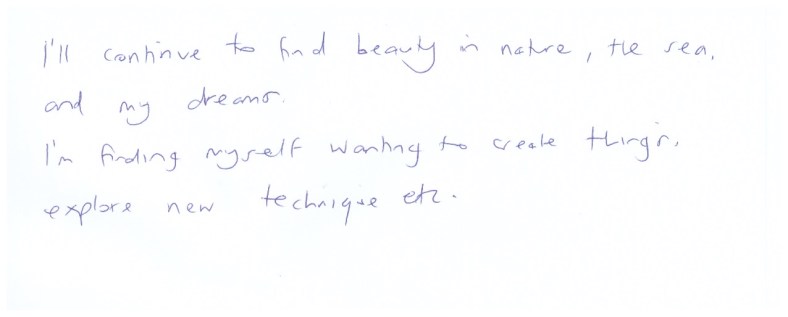 I'll continue to find beauty in nature, the sea,
and my dreams.
I'm finding myself wanting to create things,
explore new technique etc.